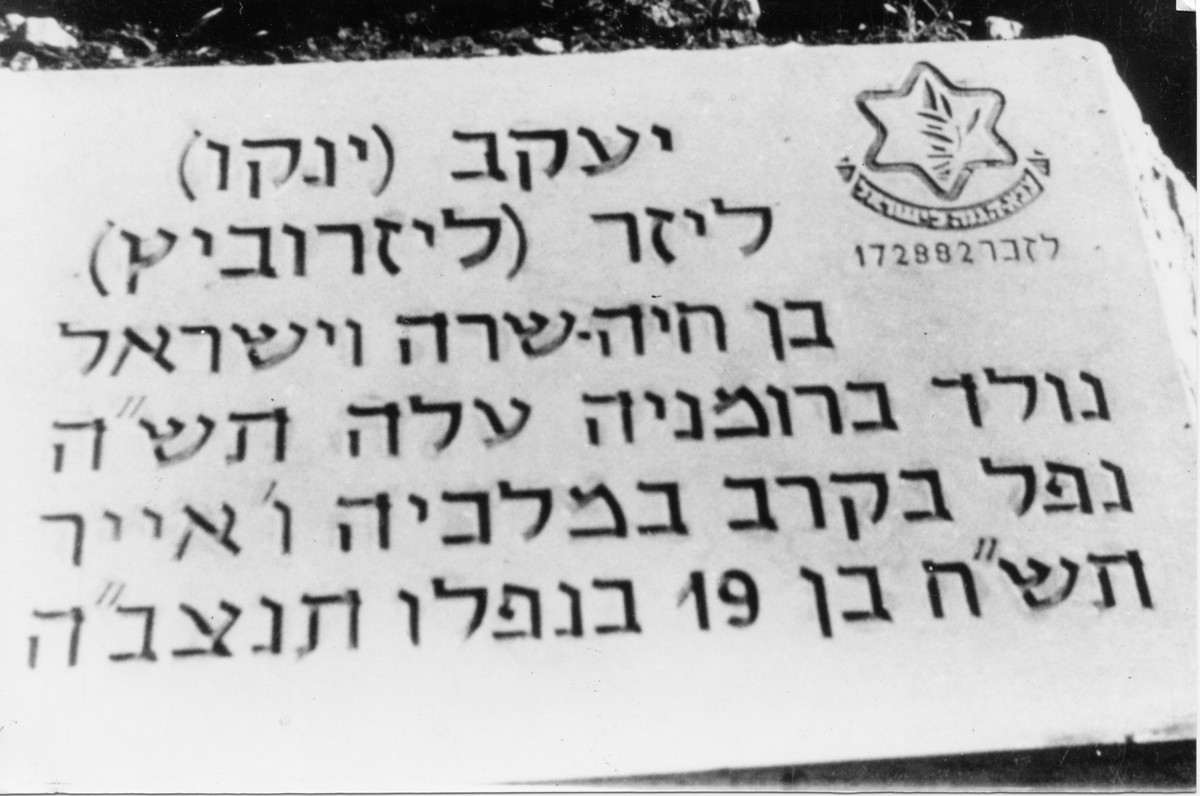 צבא·הגנה לישראל
לזכר 172882
יעקב (ינקו)
ליזר (ליזרוביץ)
בן חיה-שרה וישראל
נולד ברומניה עלה תש"ה
נפל בקרב במלכיה ו'אייר
תש"ח בן 19 בנפלו תנצב"ה